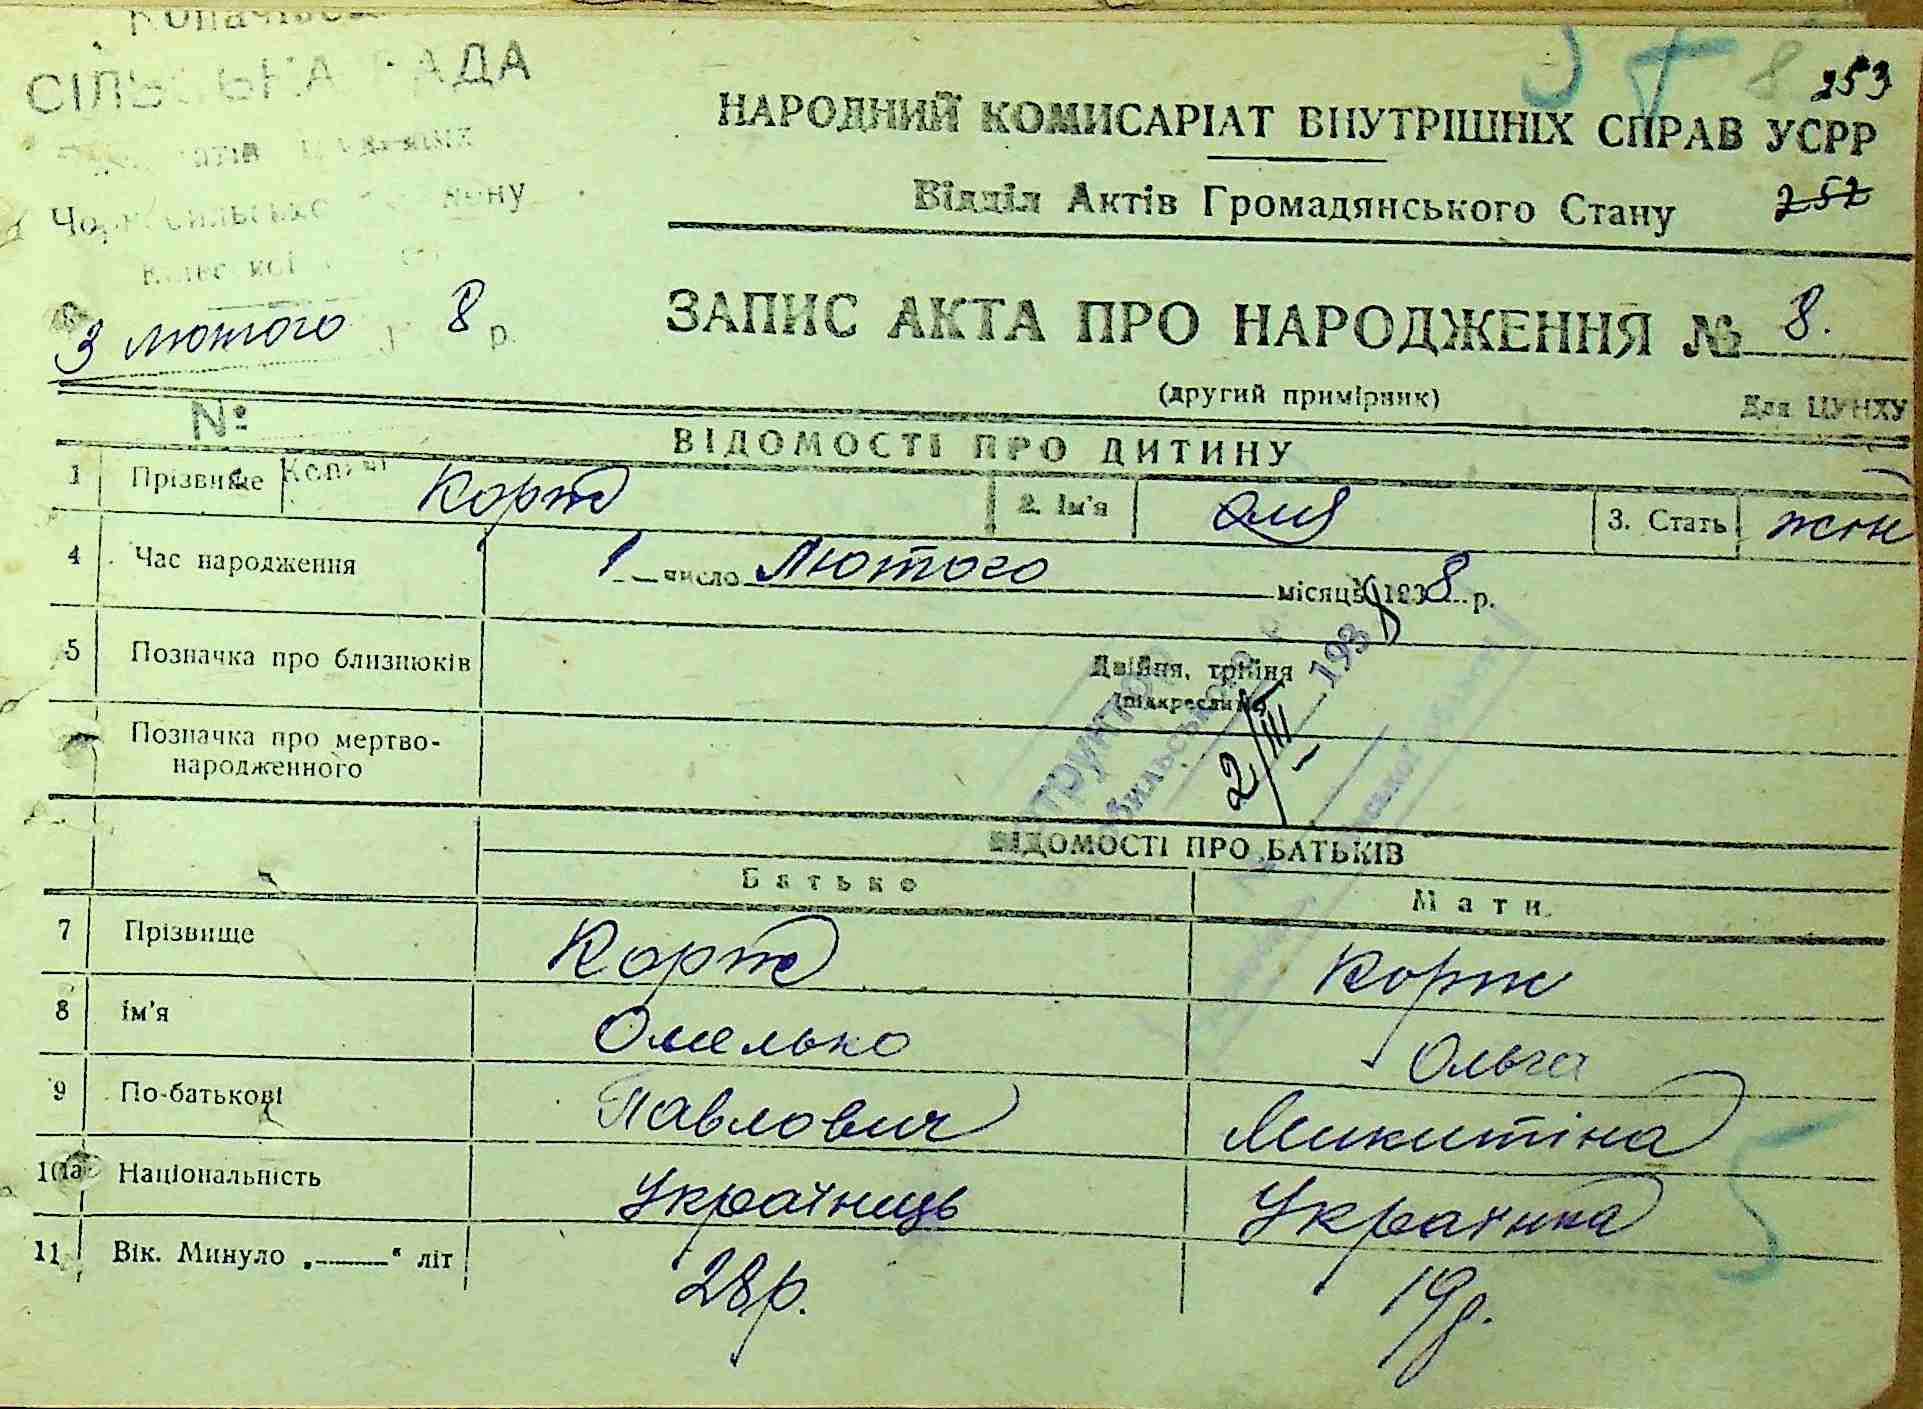 СІЛЬСЬКА РАДА
253
НАРОДНИЙ КОМИСАРІАТ ВНУТРІШНІХ СПРАВ УСРР
Відділ Актів Громадянського Стану
252
3 лютого 8 р.
ЗАПИС АКТА ПРО НАРОДЖЕННЯ № 8.
(другий примірник)
Для ЦУНХУ
№
ВІДОМОСТІ ПРО ДИТИНУ
1 Прізвище Корж 2. Ім'я Оля 3. Стать жін
4 Час народження 1 число Лютого місяця 1938 р.
5 Позначка про близнюків Двійня, трійня
(підкреслити)
2/III 1938
Позначка про мертво-
народженного
ВІДОМОСТІ ПРО БАТЬКІВ
Батько Мати
7 Прізвище Корж Корж
8 Ім'я Омелько Ольга
9 По-батькові Павлович Микитіна
10 Національність Українець Українка
11 Вік. Минуло „——" літ 28 р. 19 р.